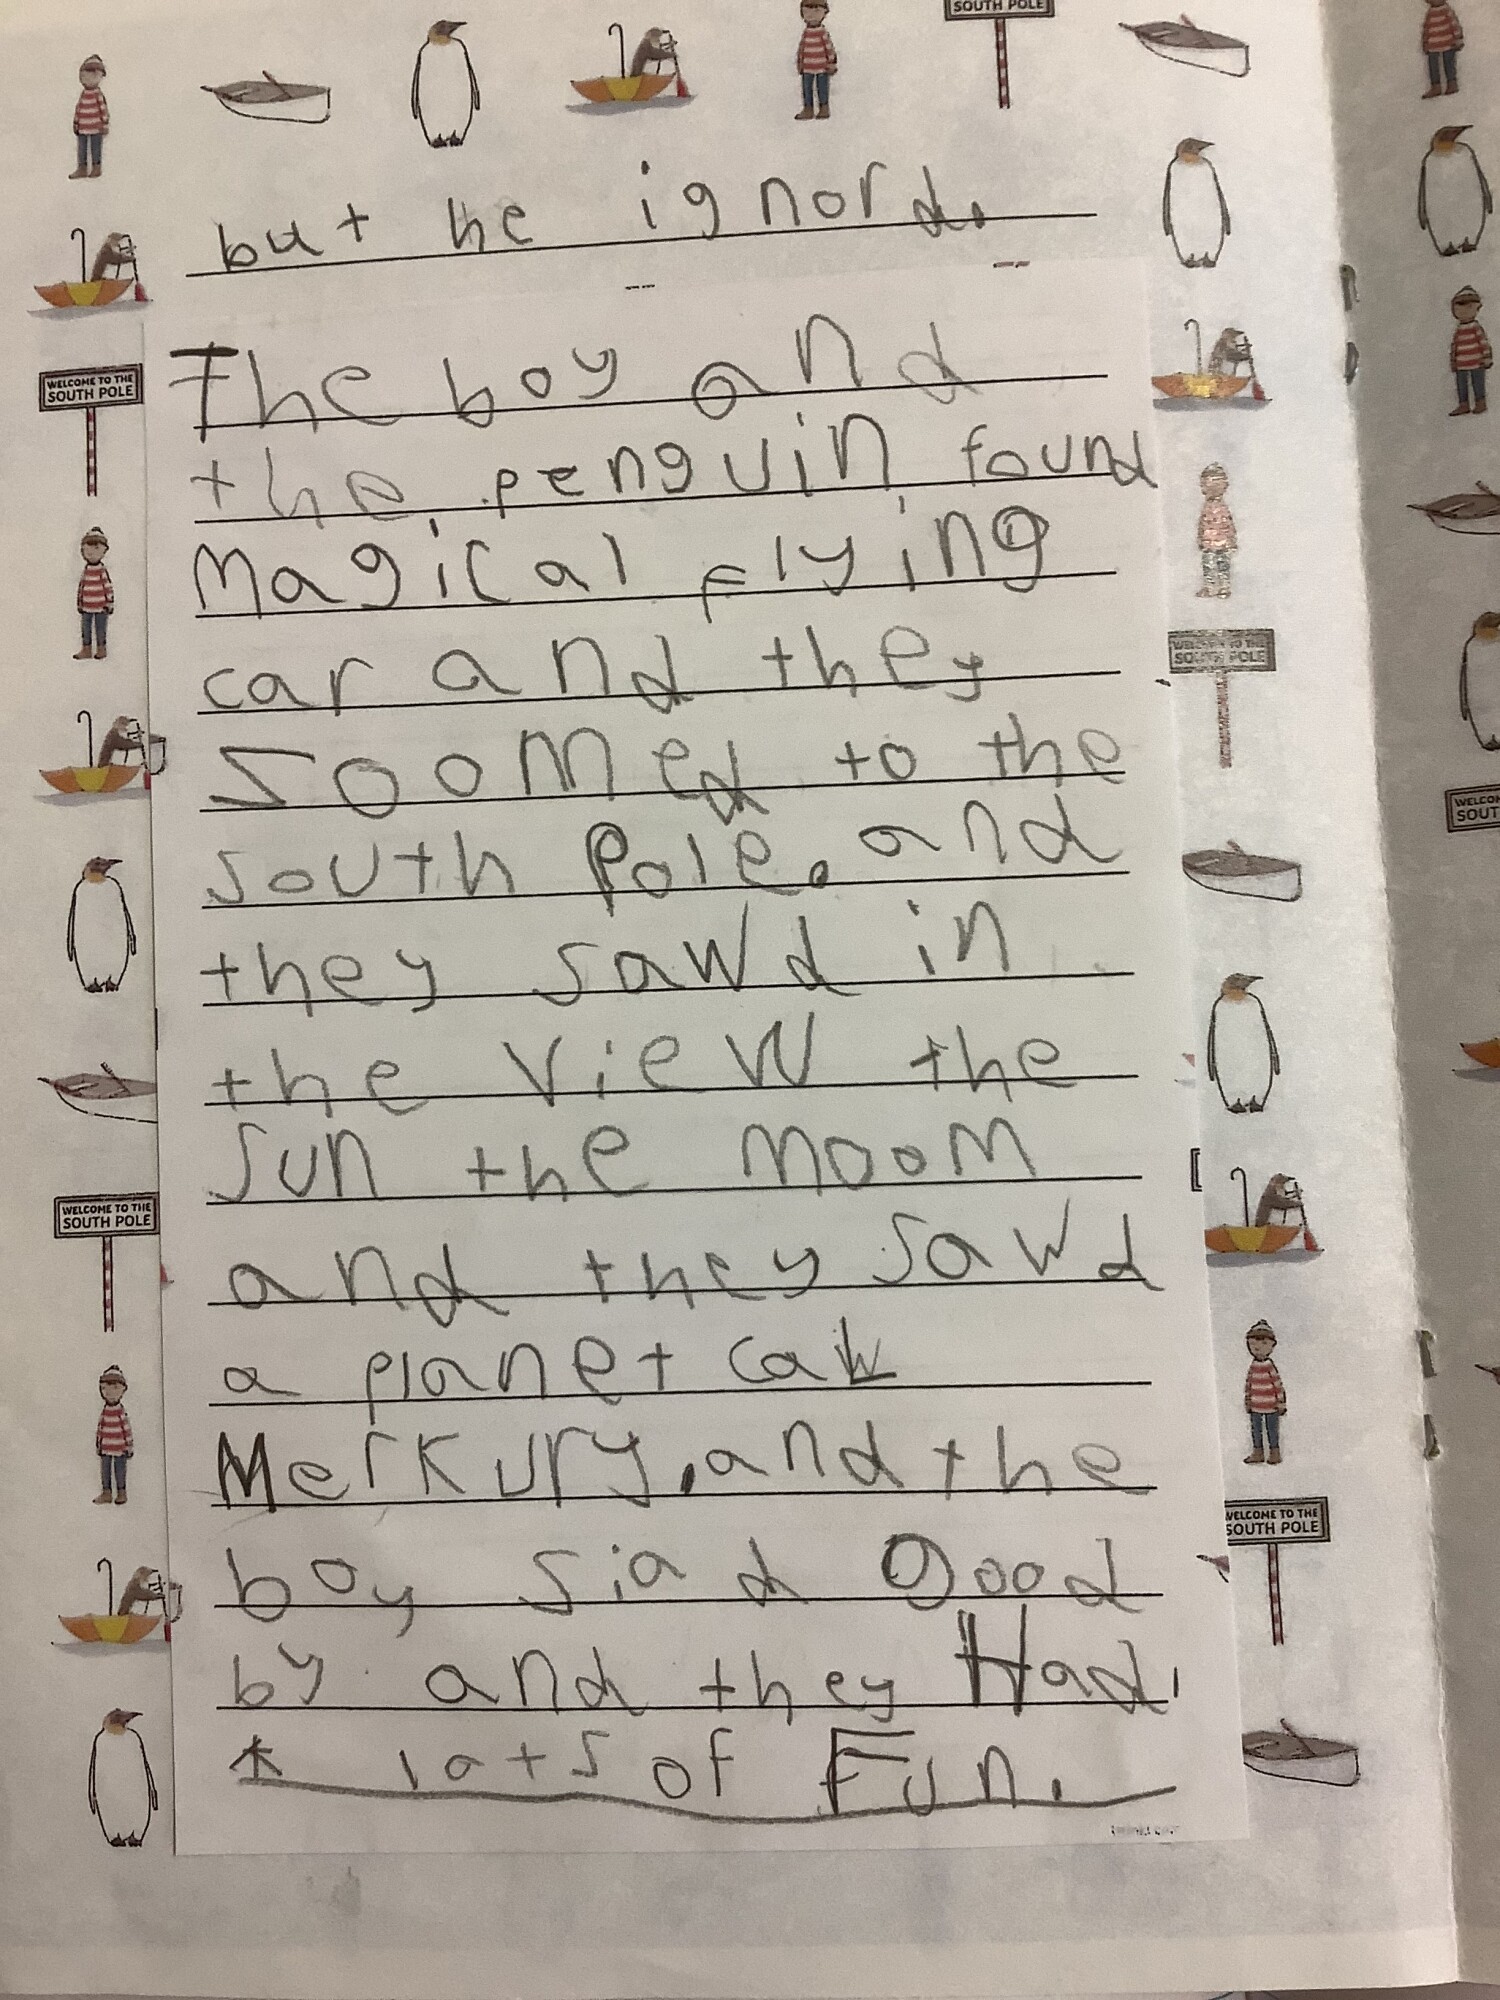 SOUTH POLE
but he ignord.
WELCOME TO THE
SOUTH POLE
The boy and
the penguin found
Magical Flying
car and they
Zoomed to the
South Pole. and
they sawd in
the view the
Sun the moom
and they sawd
WELCOME TO THE
SOUTH POLE
a planet cal
Merkury. and the
boy siad good
by and they Had
* lots of Fun.
WELCOME TO THE
SOUTH POLE
WELCOME TO THE
SOUTH POLE